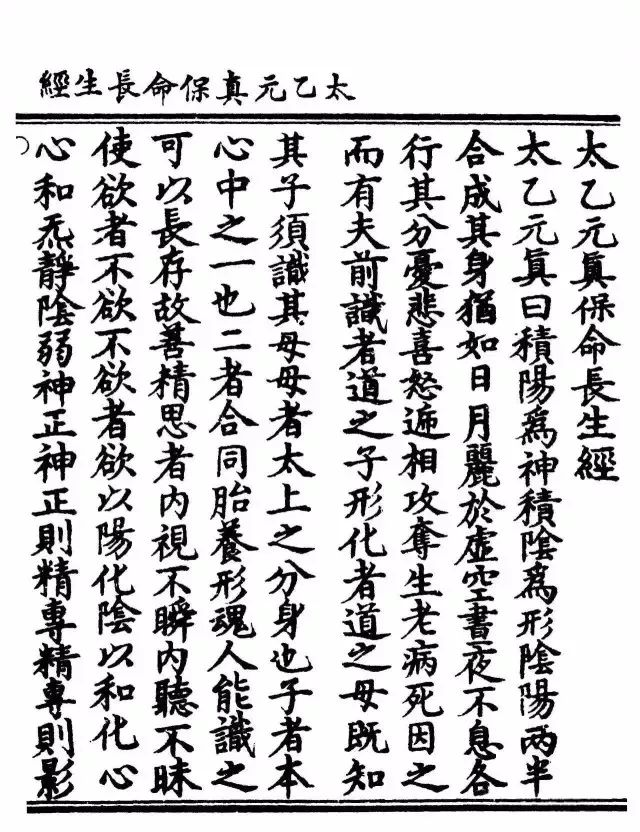 太乙元真保命長生經
太乙元眞保命長生經
太乙元眞曰積陽爲神積陰爲形陰陽兩半
合成其身猶如日月麗於虛空晝夜不息各
行其分憂悲喜怒遞相攻奪生老病死因之
而有夫前識者道之子形化者道之母既知
其子須識其母母者太上之分身也子者本
心中之一也二者合同胎養形魂人能識之
可以長存故善精思者內視不瞬內聽不昧
使欲者不欲不欲者欲以陽化陰以和化心
心和炁靜陰弱神正神正則精專精專則影